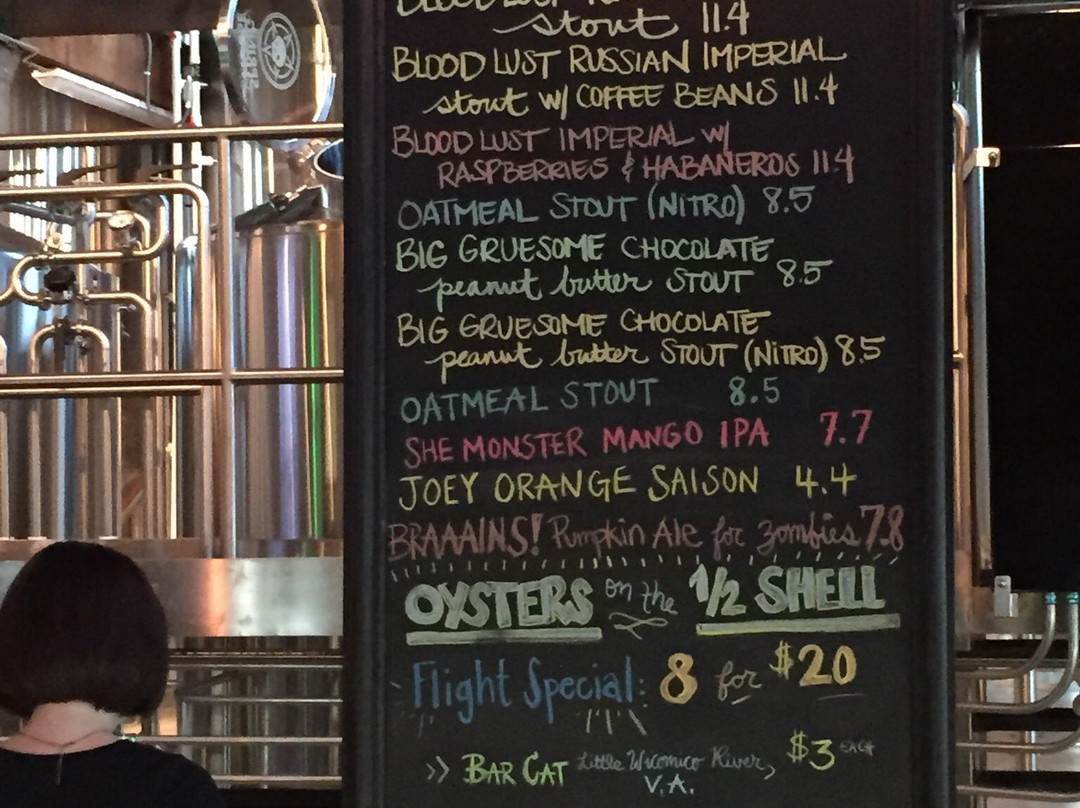 BLOOD LUST
stout 11.4
BLOOD LUST RUSSIAN IMPERIAL
stout W/ COFFEE BEANS 11.4
BLOOD LUST IMPERIAL W/
RASPBERRIES & HABANEROS 11.4
OATMEAL STOUT (NITRO) 8.5
BIG GRUESOME CHOCOLATE
peanut butter STOUT 8.5
BIG GRUESOME CHOCOLATE
peanut butter STOUT (NITRO) 8.5
OATMEAL STOUT 8.5
SHE MONSTER MANGO IPA 7.7
JOEY ORANGE SAISON 4.4
BRAAAINS! Pumpkin Ale for Zombies 7.8
OYSTERS on the 1/2 SHELL
Flight Special: 8 for $20
>> BAR CAT Little Wicomico River, $3 EACH
V.A.